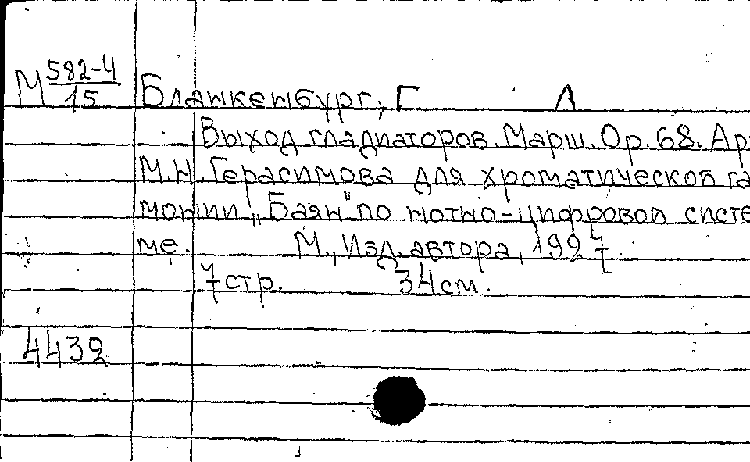 М 582-4/15 Бланкенбург, Г Л
Выход гладиаторов. Марш. Ор. 68. Ар
М.Н. Герасимова для хроматической га
монии „Баян" по нотно-цифровой систе
ме. М., Изд. автора, 1927.
7 стр. 34 см.
4432